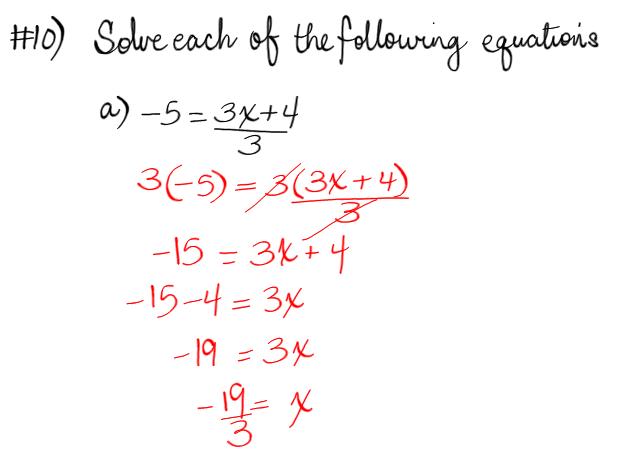 #10) Solve each of the following equations
a) -5 = 3x+4/3
3(-5) = 3(3x+4)/3
-15 = 3x+4
-15-4 = 3x
-19 = 3x
-19/3 = x